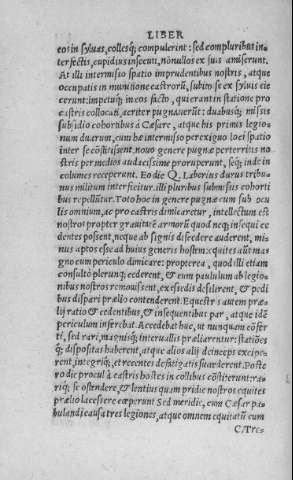 LIBER
eos in syluas, collesq́; compulerint: sed compluribus in⸗
terfectis, cupidius insecuti, nonullos ex suis amiserunt.
At illi intermisso spatio imprudentibus nostris, atque
occupatis in munitione castrorũ, subito se ex syluis eie
cerunt: impetuq́; in eos facto, qui erant in statione pro
castris collocati, acriter pugnauerũt: duabusq́; missis
subsidio cohortibus à Cæsare, atque his primis legio⸗
num duarum, cum hæ intermisso perexiguo loci spatio
inter se cõstitissent, nouo genere pugnæ perterritis no
stris per medios audacissime proruperunt, seq́; inde in
columes receperunt. Eo die Q. Laberius durus tribu⸗
nus militum interficitur. illi pluribus submissis cohorti
bus repelluntur. Toto hoc in genere pugnæ cum sub ocu
lis omnium, ac pro castris dimicaretur, intellectum est
nostros propter grauitatẽ armorũ quod neq; insequi ce
dentes possent, neque ab signis discedere auderent, mi⸗
nus aptos esse ad huius generis hostem: equites aũt ma
gno cum periculo dimicare: propterea, quod illi etiam
consulto plerunq; cederent, & cum paululum ab legio⸗
nibus nostros remouissent, ex essedis desilirent, & pedi
bus dispari prælio contenderent. Equestris autem præ⸗
lij ratio & cedentibus, & insequentibus par, atque idẽ
periculum inferebat. Accedebat huc, ut nunquam cõfer
ti, sed rari, magnisq́; interuallis præliarentur: statiões
q́; dispositas haberent, atque alios alij deinceps excipe⸗
rent, integriq́; et recentes defatigatis succederent. Poste
ro die procul à castris hostes in collibus cõstiterunt: ra⸗
riq́; se ostendere, & lentius quàm pridie nostros equites
prælio lacessere cœperunt Sed meridie, cum Cæsar pa⸗
bulandi causa tres legiones, atque omnem equitatũ cum
C. Tre⸗